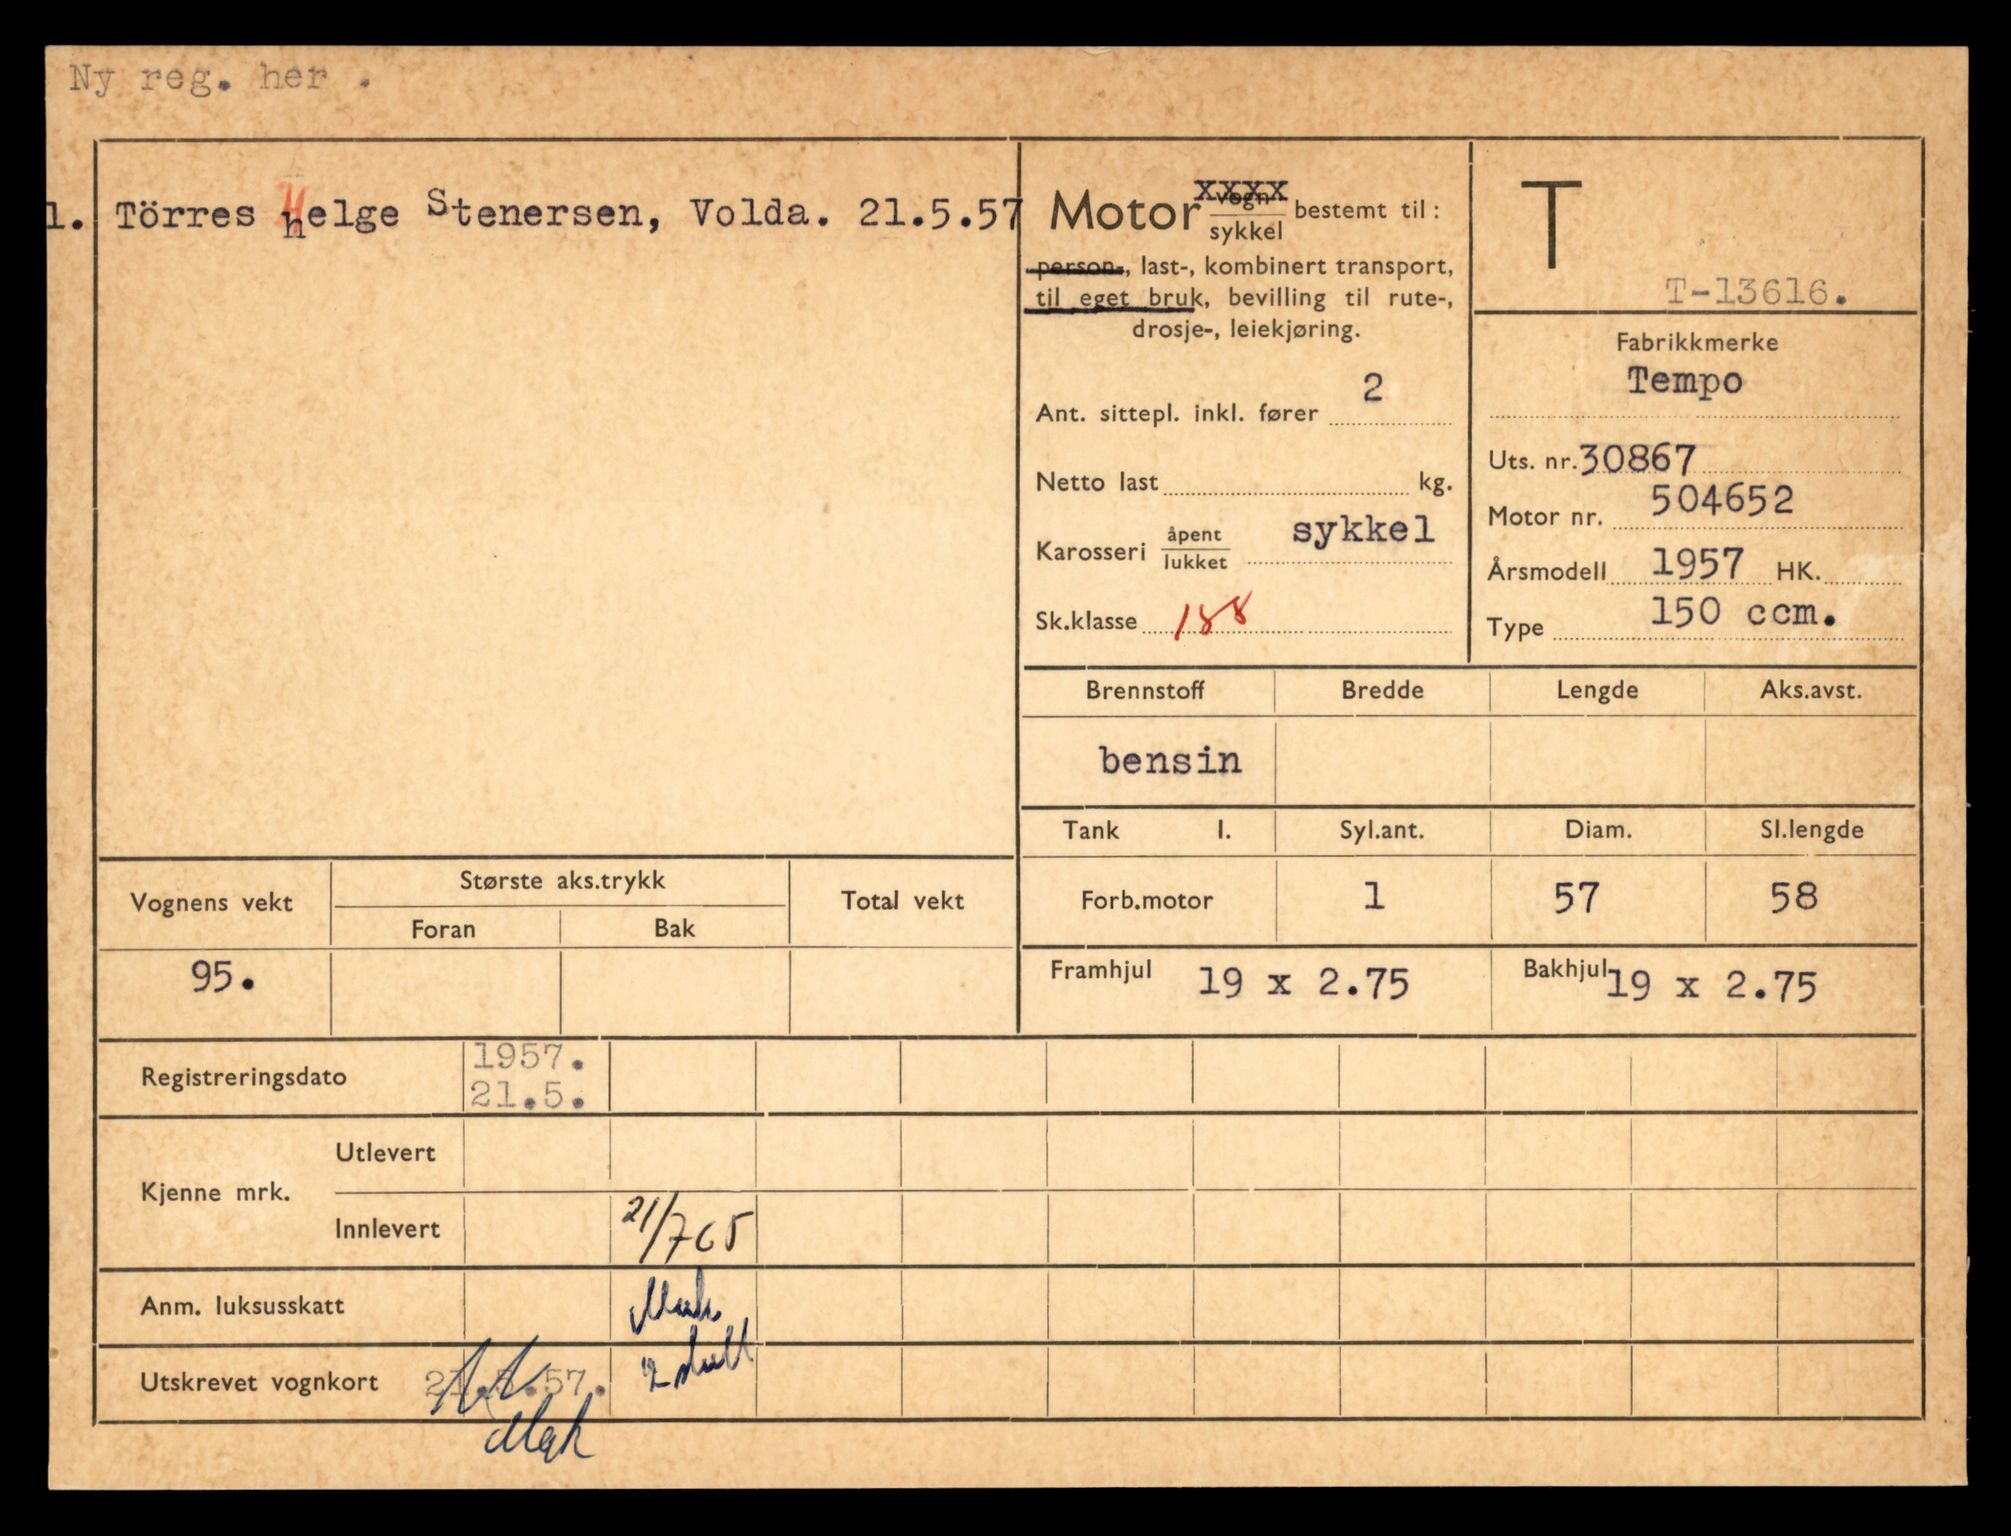 Ny reg. her .
1. Törres Helge Stenersen, Volda. 21.5.57
Motor vogn xxxx
sykkel bestemt til :
person-, last-, kombinert transport,
til eget bruk, bevilling til rute-,
drosje-, leiekjøring.
Ant. sittepl. inkl. fører 2
Netto last kg.
Karosseri åpent
lukket sykkel
Sk.klasse 188
T
T-13616.
Fabrikkmerke
Tempo
Uts. nr. 30867
Motor nr. 504652
Årsmodell 1957 HK.
Type 150 ccm.
Brennstoff Bredde Lengde Aks.avst.
bensin
Tank l. Syl.ant. Diam. Sl.lengde
Forb.motor 1 57 58
Framhjul 19 x 2.75 Bakhjul 19 x 2.75
Vognens vekt Største aks.trykk Total vekt
Foran Bak
95.
Registreringsdato 1957.
21.5.
Kjenne mrk. Utlevert
Innlevert 21/7 65
Anm. luksusskatt
Utskrevet vognkort 21.5.57.